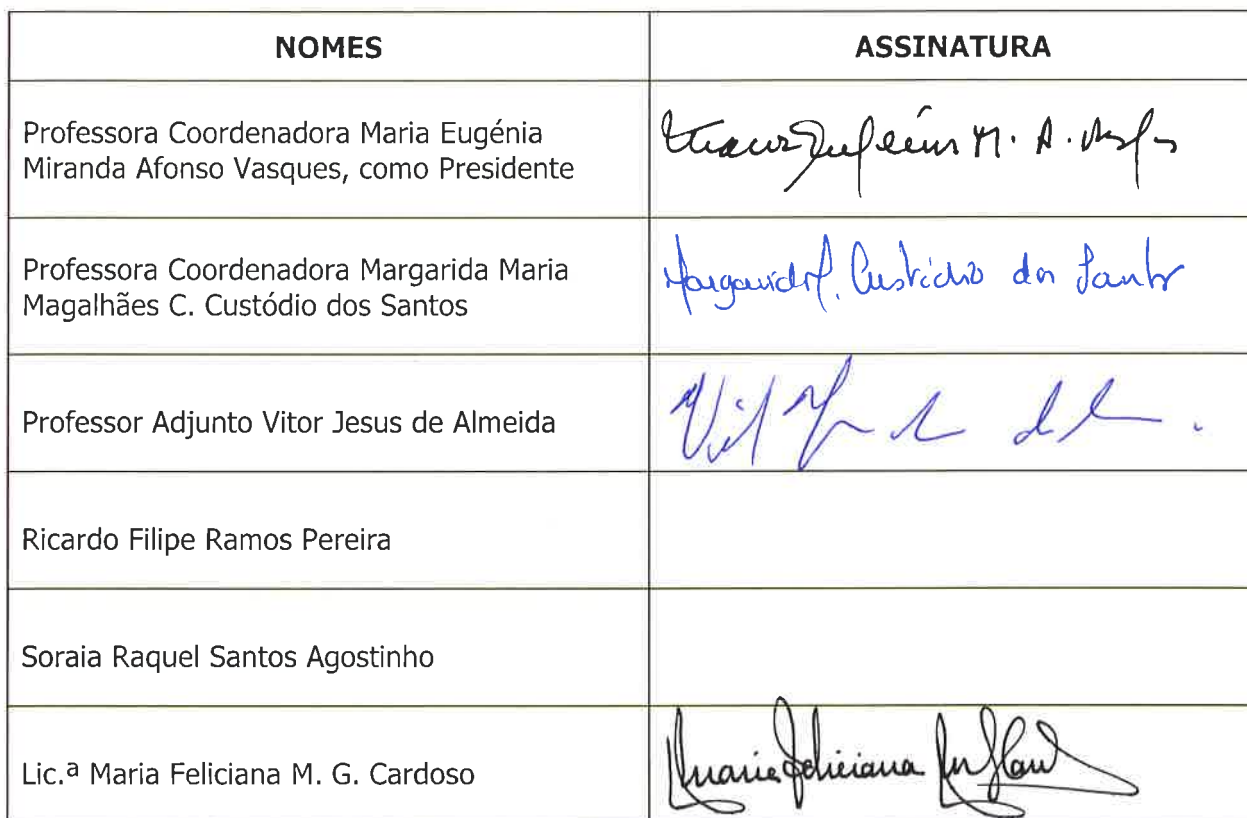 NOMES
ASSINATURA
Professora Coordenadora Maria Eugénia
Miranda Afonso Vasques, como Presidente
Maria Eugénia M. A.
Professora Coordenadora Margarida Maria
Magalhães C. Custódio dos Santos
Margarida Custódio dos Santos
Professor Adjunto Vitor Jesus de Almeida
Ricardo Filipe Ramos Pereira
Soraia Raquel Santos Agostinho
Lic.ª Maria Feliciana M. G. Cardoso
Maria Feliciana